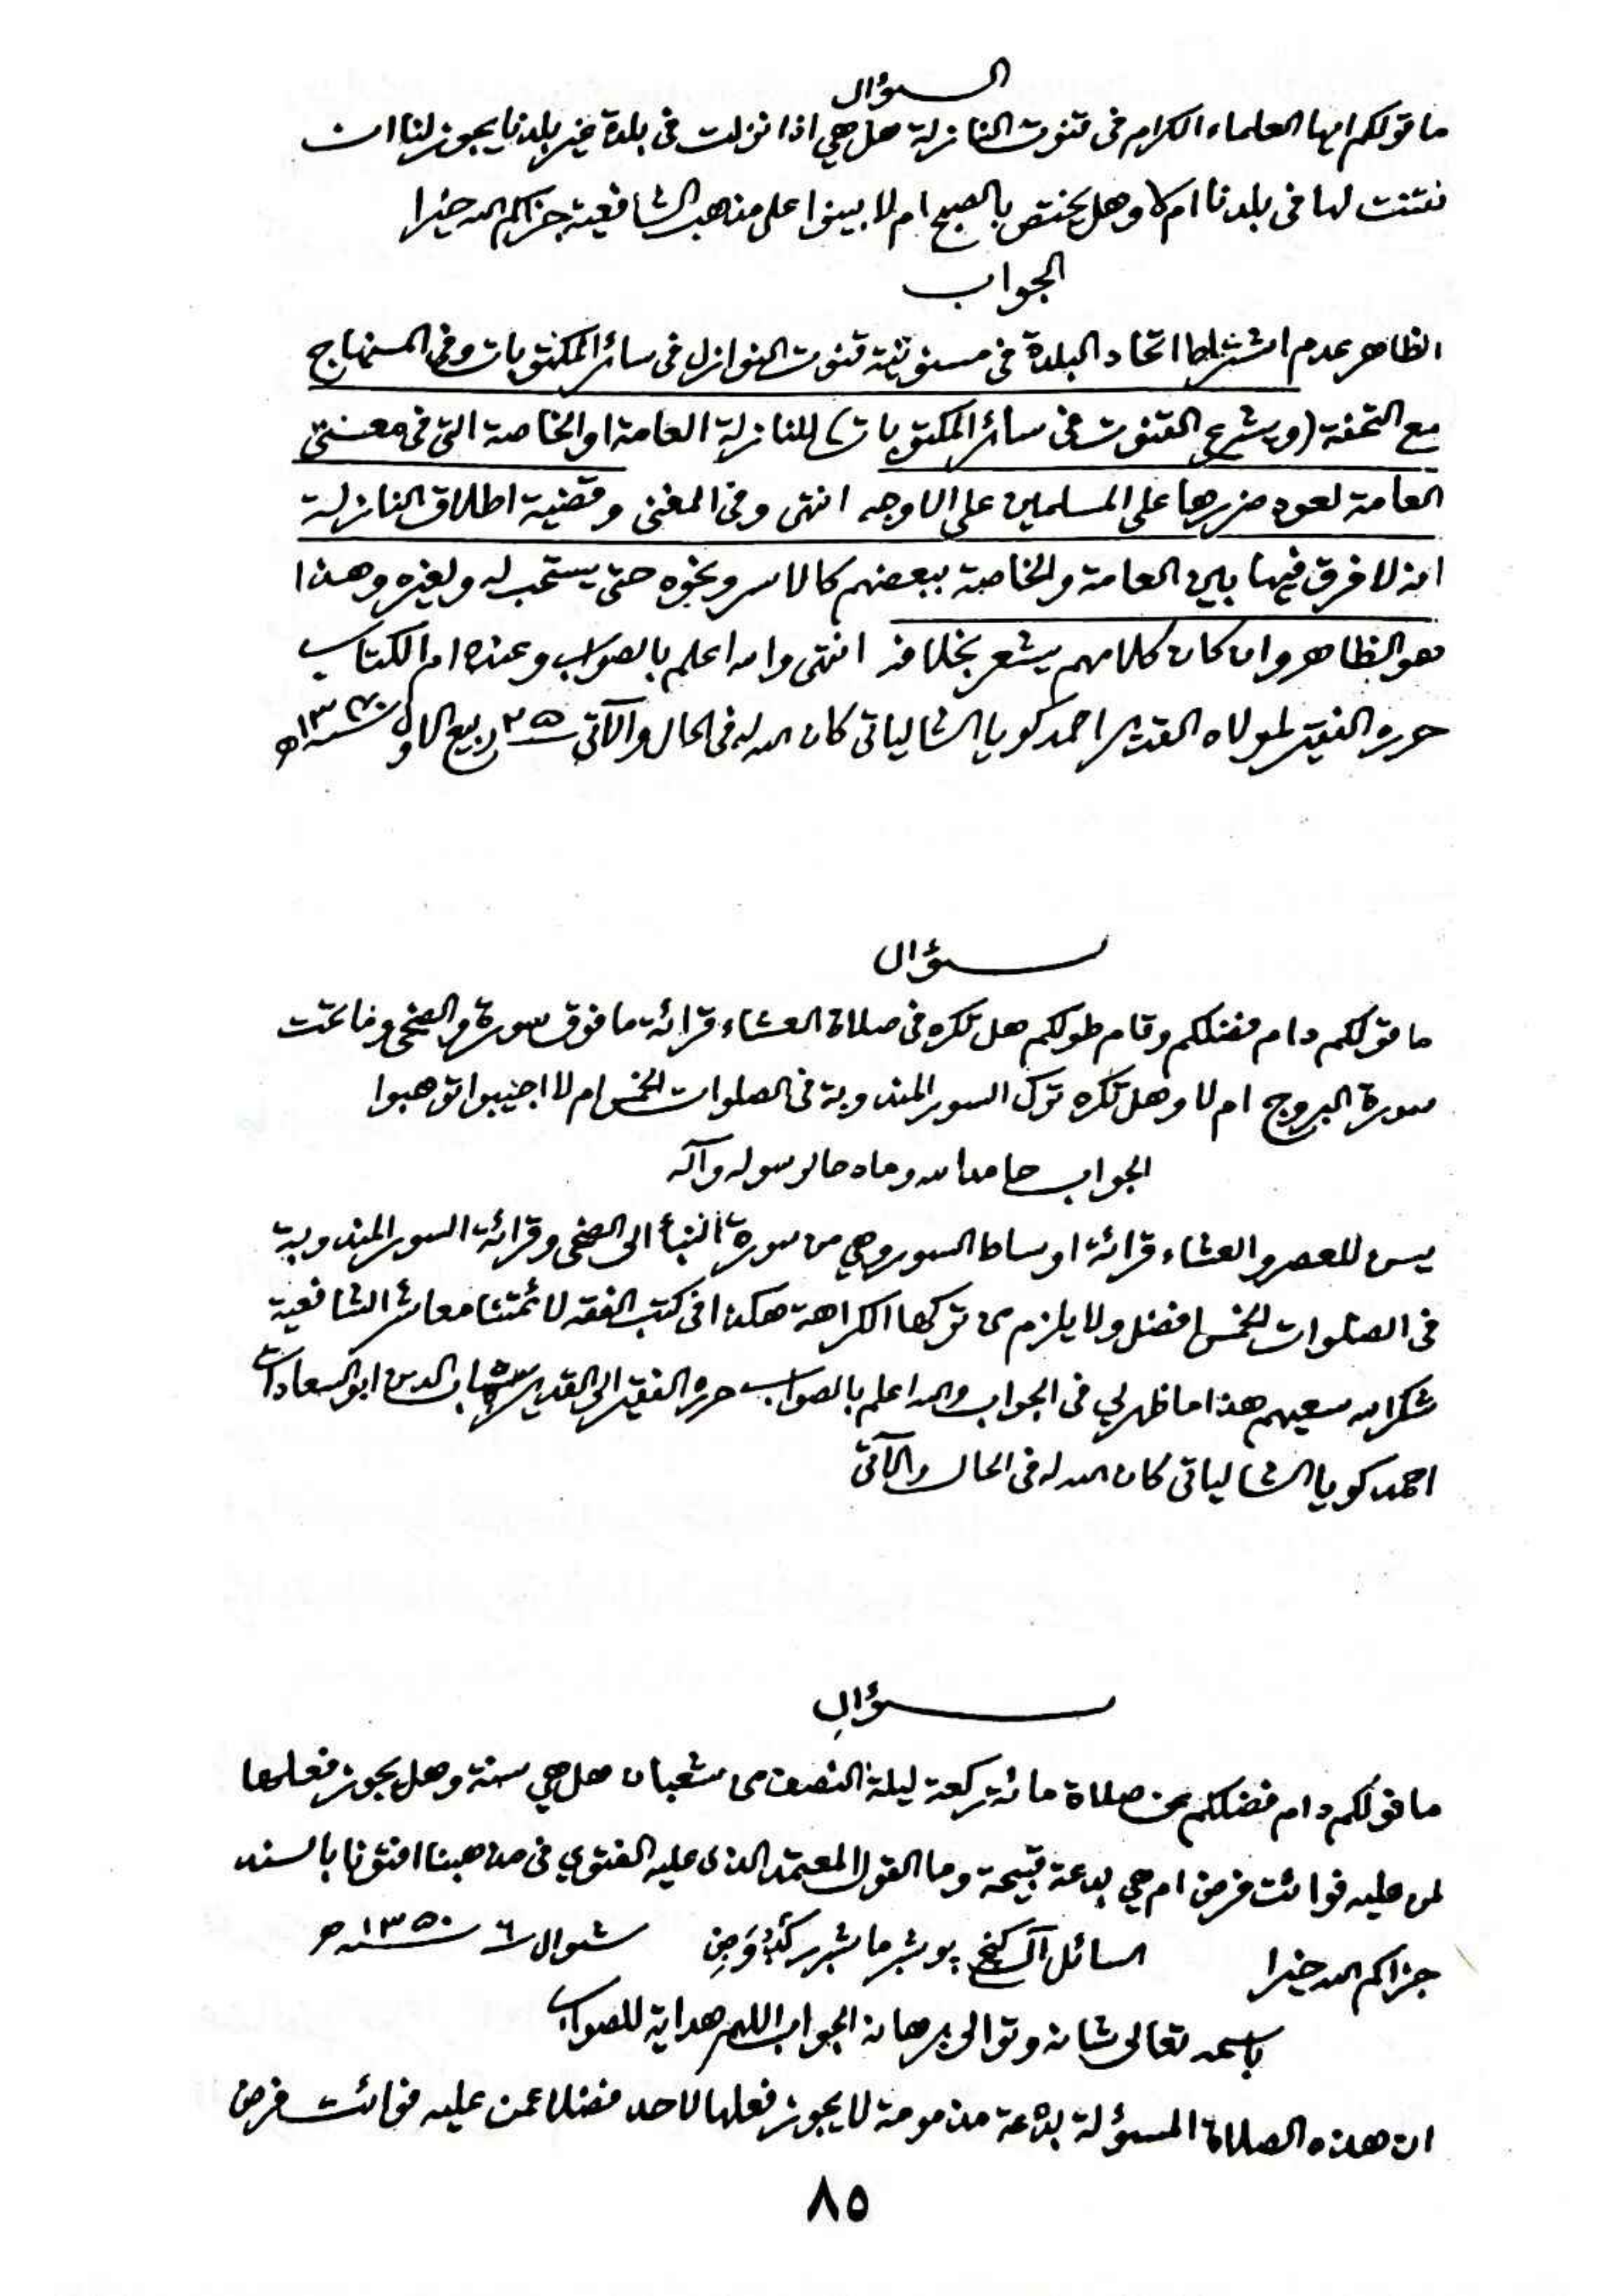 السؤال
ما قولكم ايها العلماء الكرام فى قنوت النازلة هل هي اذا نزلت فى بلدة غير بلدنا يجوز لنا ان
نقنت لها فى بلدنا ام لا وهل يختص بالصبح ام لا بينوا على مذهب الشافعية جزاكم الله خيرا
الجواب
الظاهر عدم اشتراط اتحاد البلدة فى مسنونية قنوت النوازل فى سائر المكتوبات وفى المنهاج
مع التحفة (ويشرع القنوت فى سائر المكتوبات) للنازلة العامة او الخاصة التى فى معنى
العامة لعود ضررها على المسلمين على الاوجه انتهى وفى المغنى وقضية اطلاق النازلة
انه لا فرق فيها بين العامة والخاصة ببعضهم كالاسر ونحوه حتى يستحب له ولغيره وهذا
هو الظاهر وان كان كلامهم يشعر بخلافه انتهى والله اعلم بالصواب وعنده ام الكتاب
حرره الفقير لمولاه القدير احمد كويا الشالياتى كان الله له فى الحال والآتى ٢٥ ربيع الاول
سؤال
ما قولكم دام فضلكم وقام طولكم هل تكره فى صلاة العشاء قرائة ما فوق سورة والضحى وما تحت
سورة البروج ام لا وهل تكره ترك السور المندوبة فى الصلوات الخمس ام لا اجيبوا توهبوا
الجواب حامدا لله ومادحا لرسوله وآله
يسن للعصر والعشاء قرائة اوساط السور وهي من سورة النبأ الى الضحى وقرائة السور المندوبة
فى الصلوات الخمس افضل ولا يلزم من تركها الكراهة هكذا فى كتب الفقه لائمتنا معاشر الشافعية
شكر الله سعيهم هذا ما ظهر لي فى الجواب والله اعلم بالصواب حرره الفقير الى القدير شهاب الدين ابو السعادات
احمد كويا الشالياتى كان الله له فى الحال والآتى
سؤال
ما قولكم دام فضلكم عن صلاة مائة ركعة ليلة النصف من شعبان هل هي سنة وهل يجوز فعلها
لمن عليه فوائت فرض ام هي بدعة قبيحة وما القول المعتمد الذى عليه الفتوي فى مذهبنا افتونا بالسند
جزاكم الله خيرا السائل شوال ٦ سنة ١٣٥٠ ه
باسمه تعالى شانه وتوالى برهانه الجواب اللهم هداية للصواب
ان هذه الصلاة المسؤلة بدعة مذمومة لا يجوز فعلها لاحد فضلا عمن عليه فوائت فرض
٨٥